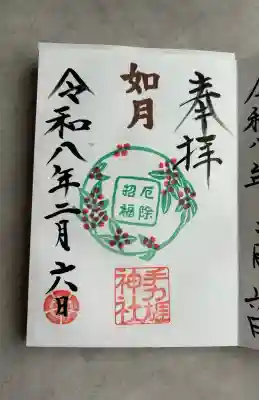 奉拝
如月
厄除
招福
手力雄
神社
令和八年二月六日